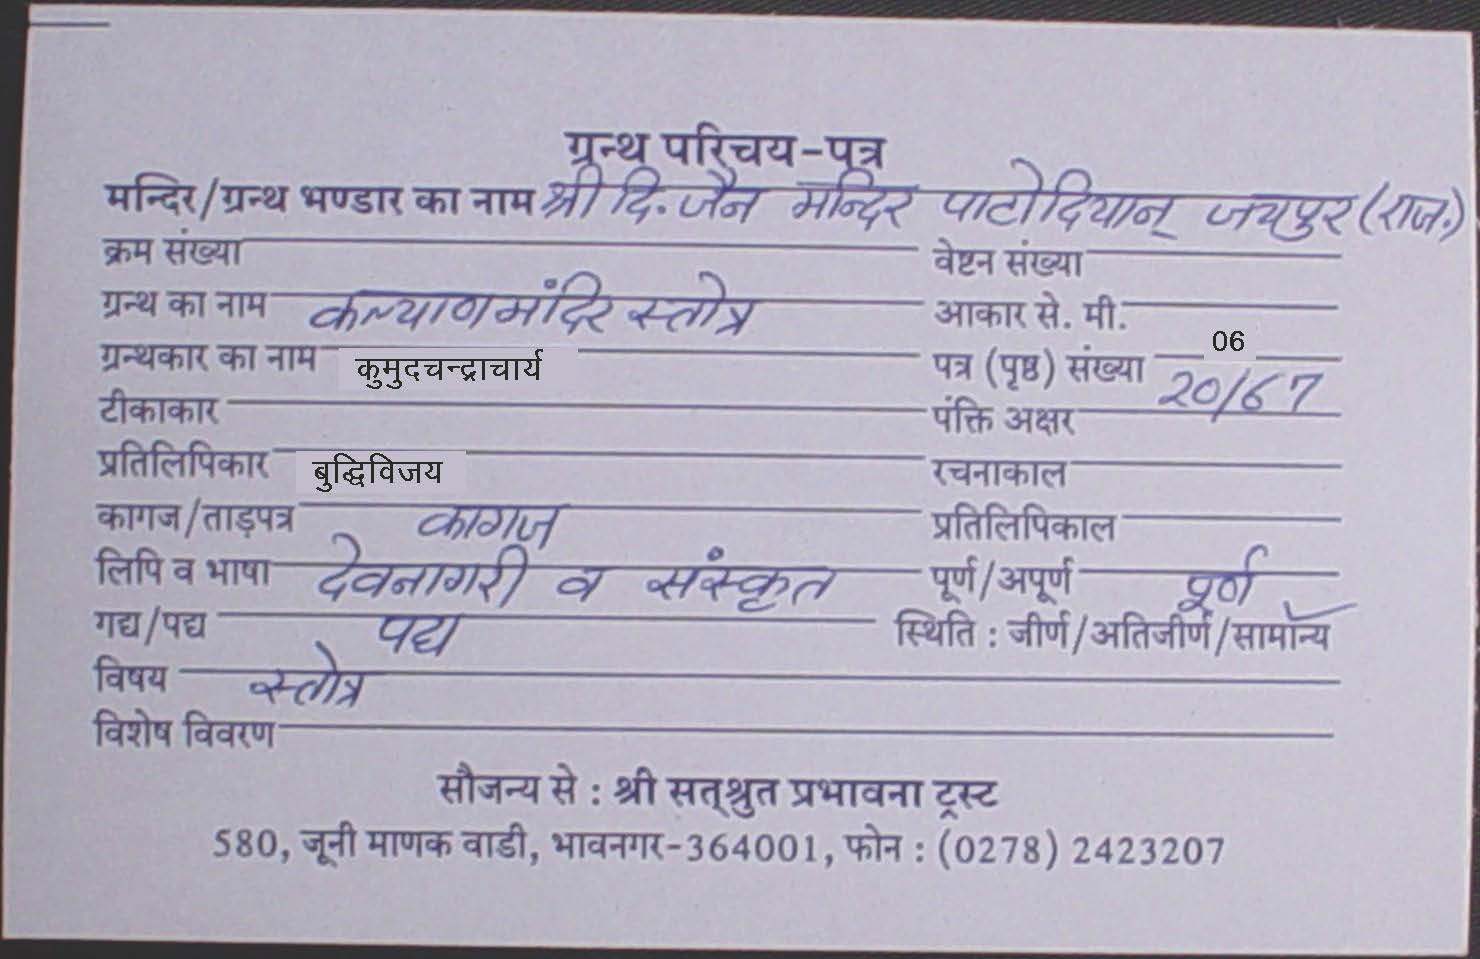 ग्रन्थ परिचय-पत्र
मन्दिर/ग्रन्थ भण्डार का नाम श्री दि. जैन मन्दिर पाटोदियान् जयपुर (राज.)
क्रम संख्या वेष्टन संख्या
ग्रन्थ का नाम कल्याणमंदिर स्तोत्र आकार से. मी.
ग्रन्थकार का नाम कुमुदचन्द्राचार्य पत्र (पृष्ठ) संख्या 06
टीकाकार पंक्ति अक्षर 20/67
प्रतिलिपिकार बुद्धिविजय रचनाकाल
कागज/ताड़पत्र कागज प्रतिलिपिकाल
लिपि व भाषा देवनागरी व संस्कृत पूर्ण/अपूर्ण पूर्ण
गद्य/पद्य पद्य स्थिति : जीर्ण/अतिजीर्ण/सामान्य
विषय स्तोत्र
विशेष विवरण
सौजन्य से : श्री सत्श्रुत प्रभावना ट्रस्ट
580, जूनी माणक वाडी, भावनगर-364001, फोन : (0278) 2423207